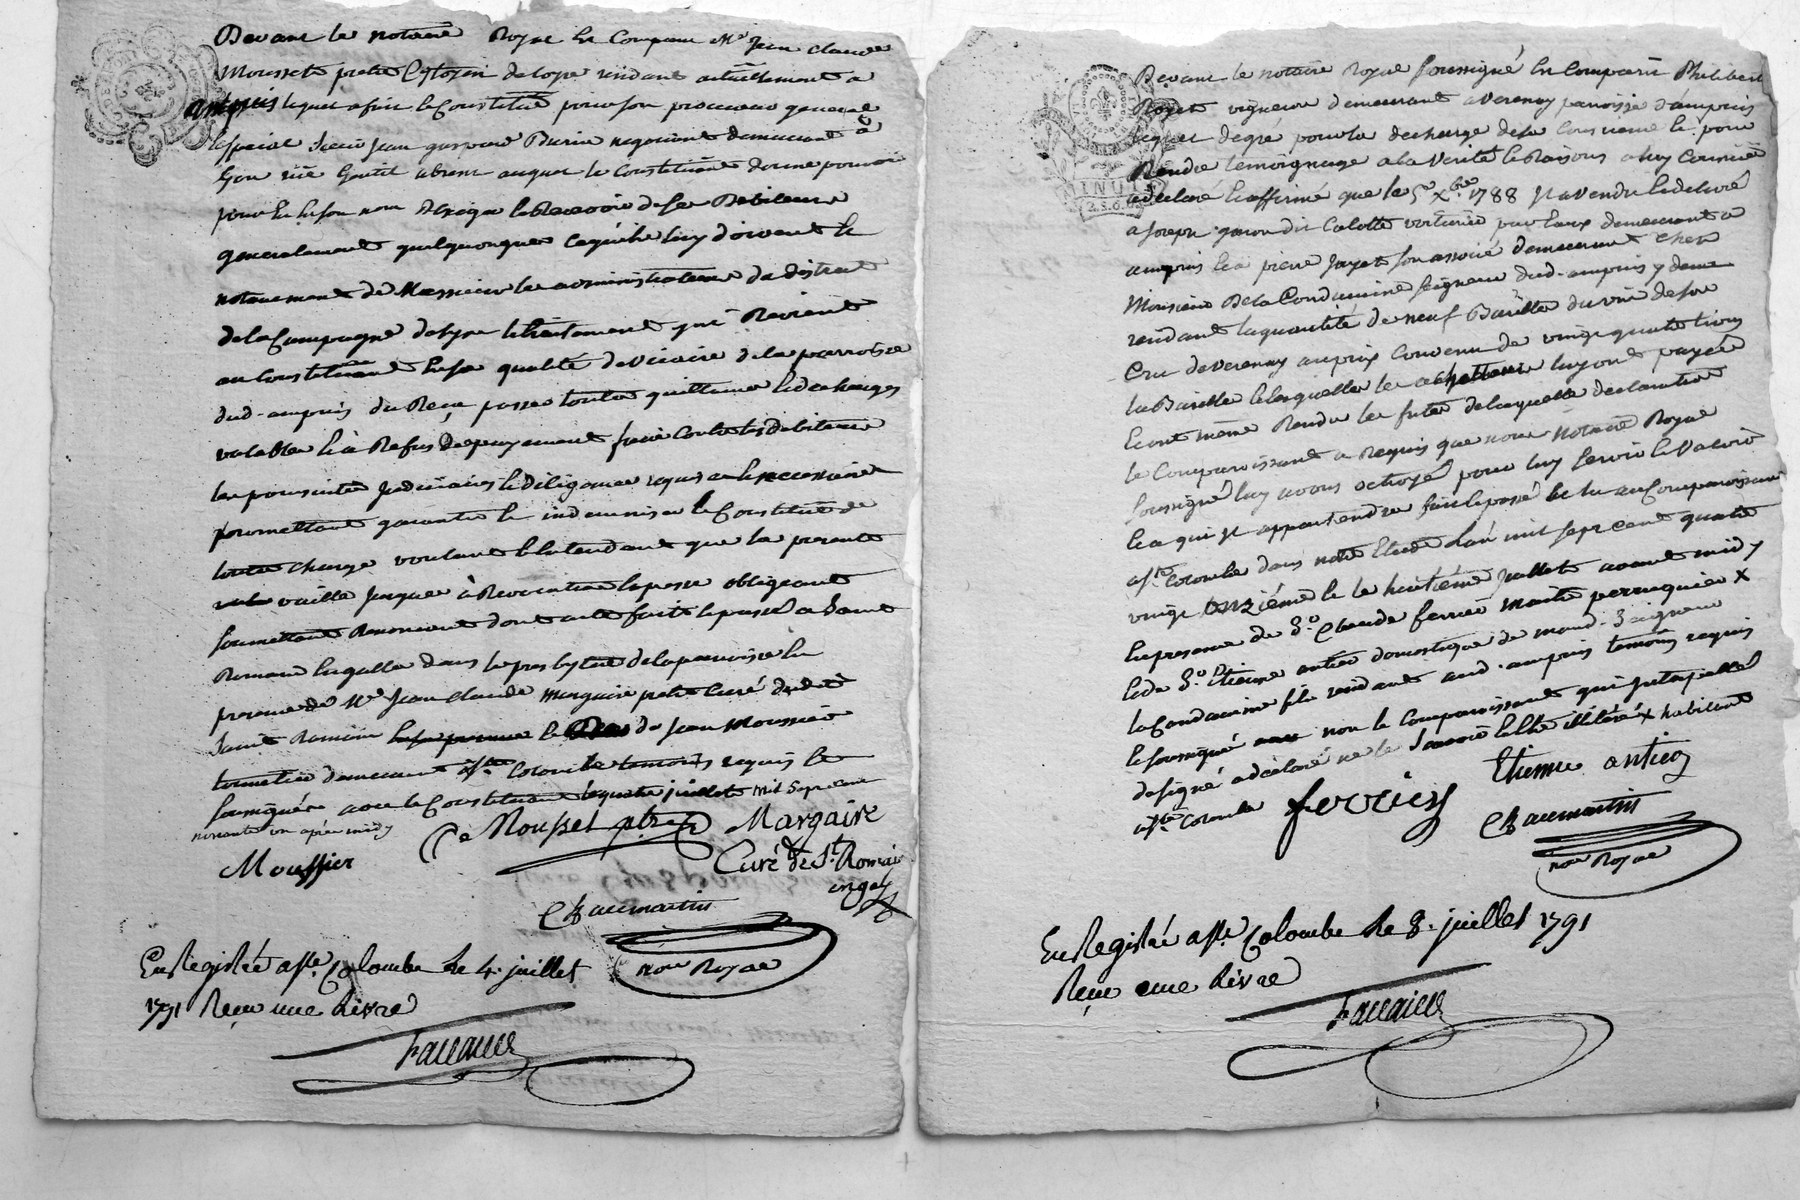 Devant le notaire Royal est Comparu Mre Jean Claude
Mousset pretre Citoyen de Loyre résidant actuellement a
ampuis lequel a fait & Constitué pour son procureur general
& special Sieur Jean gaspard Burin negociant demeurant à
Lyon absent auquel le Constituant donne pouvoir
pour & en son nom d'Exiger & Recevoir de ses Debiteurs
generalement quelquonques ce qu'ils luy doivent &
notament de Messieurs les administrateurs du district
de la Campagne de Lyon le traitement qui Revient
au Constituant en sa qualité de vicaire de la parroisse
dud. ampuis du Reçu passer toutes quittances & decharges
valables & à Refus de payement faire Contre les debiteurs
les poursuites judiciaires & diligences requises & necessaires
promettant garantir & indemniser le Constitué de
toute charge voulant & entendant que la presente
vaille jusques à Revocation expresse obligeant
soumettant Renonçant dont acte fait & passé a Saint
Romain en gallet dans le presbytere de la paroisse en
presence de Mre Jean Claude Margaire pretre Curé dudit
Saint Romain & de Jean Moussier
demeurant a Ste Colombe temoins requis &
soussignés avec le Constituant le quatre juillet mil sept cent
nonante un apres midy
Mousset ptre Margaire
Moussier Curé de St. Romain
en gal
Chaumartin
not. Royal
EnRegistré a Ste. Colombe Le 4. juillet
1791 Reçu une Livre
Devant le notaire Royal soussigné est Comparu Philibert
Royet vigneron demeurant a Verenay paroisse d'ampuis
lequel de gré pour la decharge de sa Conscience & pour
Rendre temoignage a la Verité & Raisons a luy Connues
a déclaré & affirmé que le 5e Xbre 1788 il a vendu & delivré
a Joseph garon dit Calotte voiturier par Eaux demeurant a
ampuis & a pierre jayet son associé demeurant chez
Monsieur De la Condamine seigneur dud. ampuis y deme
rendant la quantité de neuf Barilles du vin de son
Cru de Verenay au prix Convenu de vingt quatre livres
la Barille & lesquelles les achetteurs luy ont payées
& ont même Rendu les futes de laquelle declaration
le Comparoissant a Requis que nous Notaire Royal
soussigné luy avons octroyé pour luy servir & Valoir
& a qui il appartiendra fait & passé & lu au Comparoissant
a Ste Colombe dans notre Etude L'an mil sept cent quatre
vingt onzième & le huitième juillet avant midy
En presence de Sr. Claude ferrier maitre perruquier X
& de Sr. Etienne antier domestique de mond. Seigneur
la Condamine fils residant aud. ampuis temoins requis
& soussignés non le Comparoissant qui interpellé
de signé a déclaré ne le savoir & être illiteré X habitant
a Ste Colombe ferrier Etienne antier
Chaumartin
not. Royal
EnRegistré a Ste. Colombe Le 8. juillet 1791
Reçu une Livre